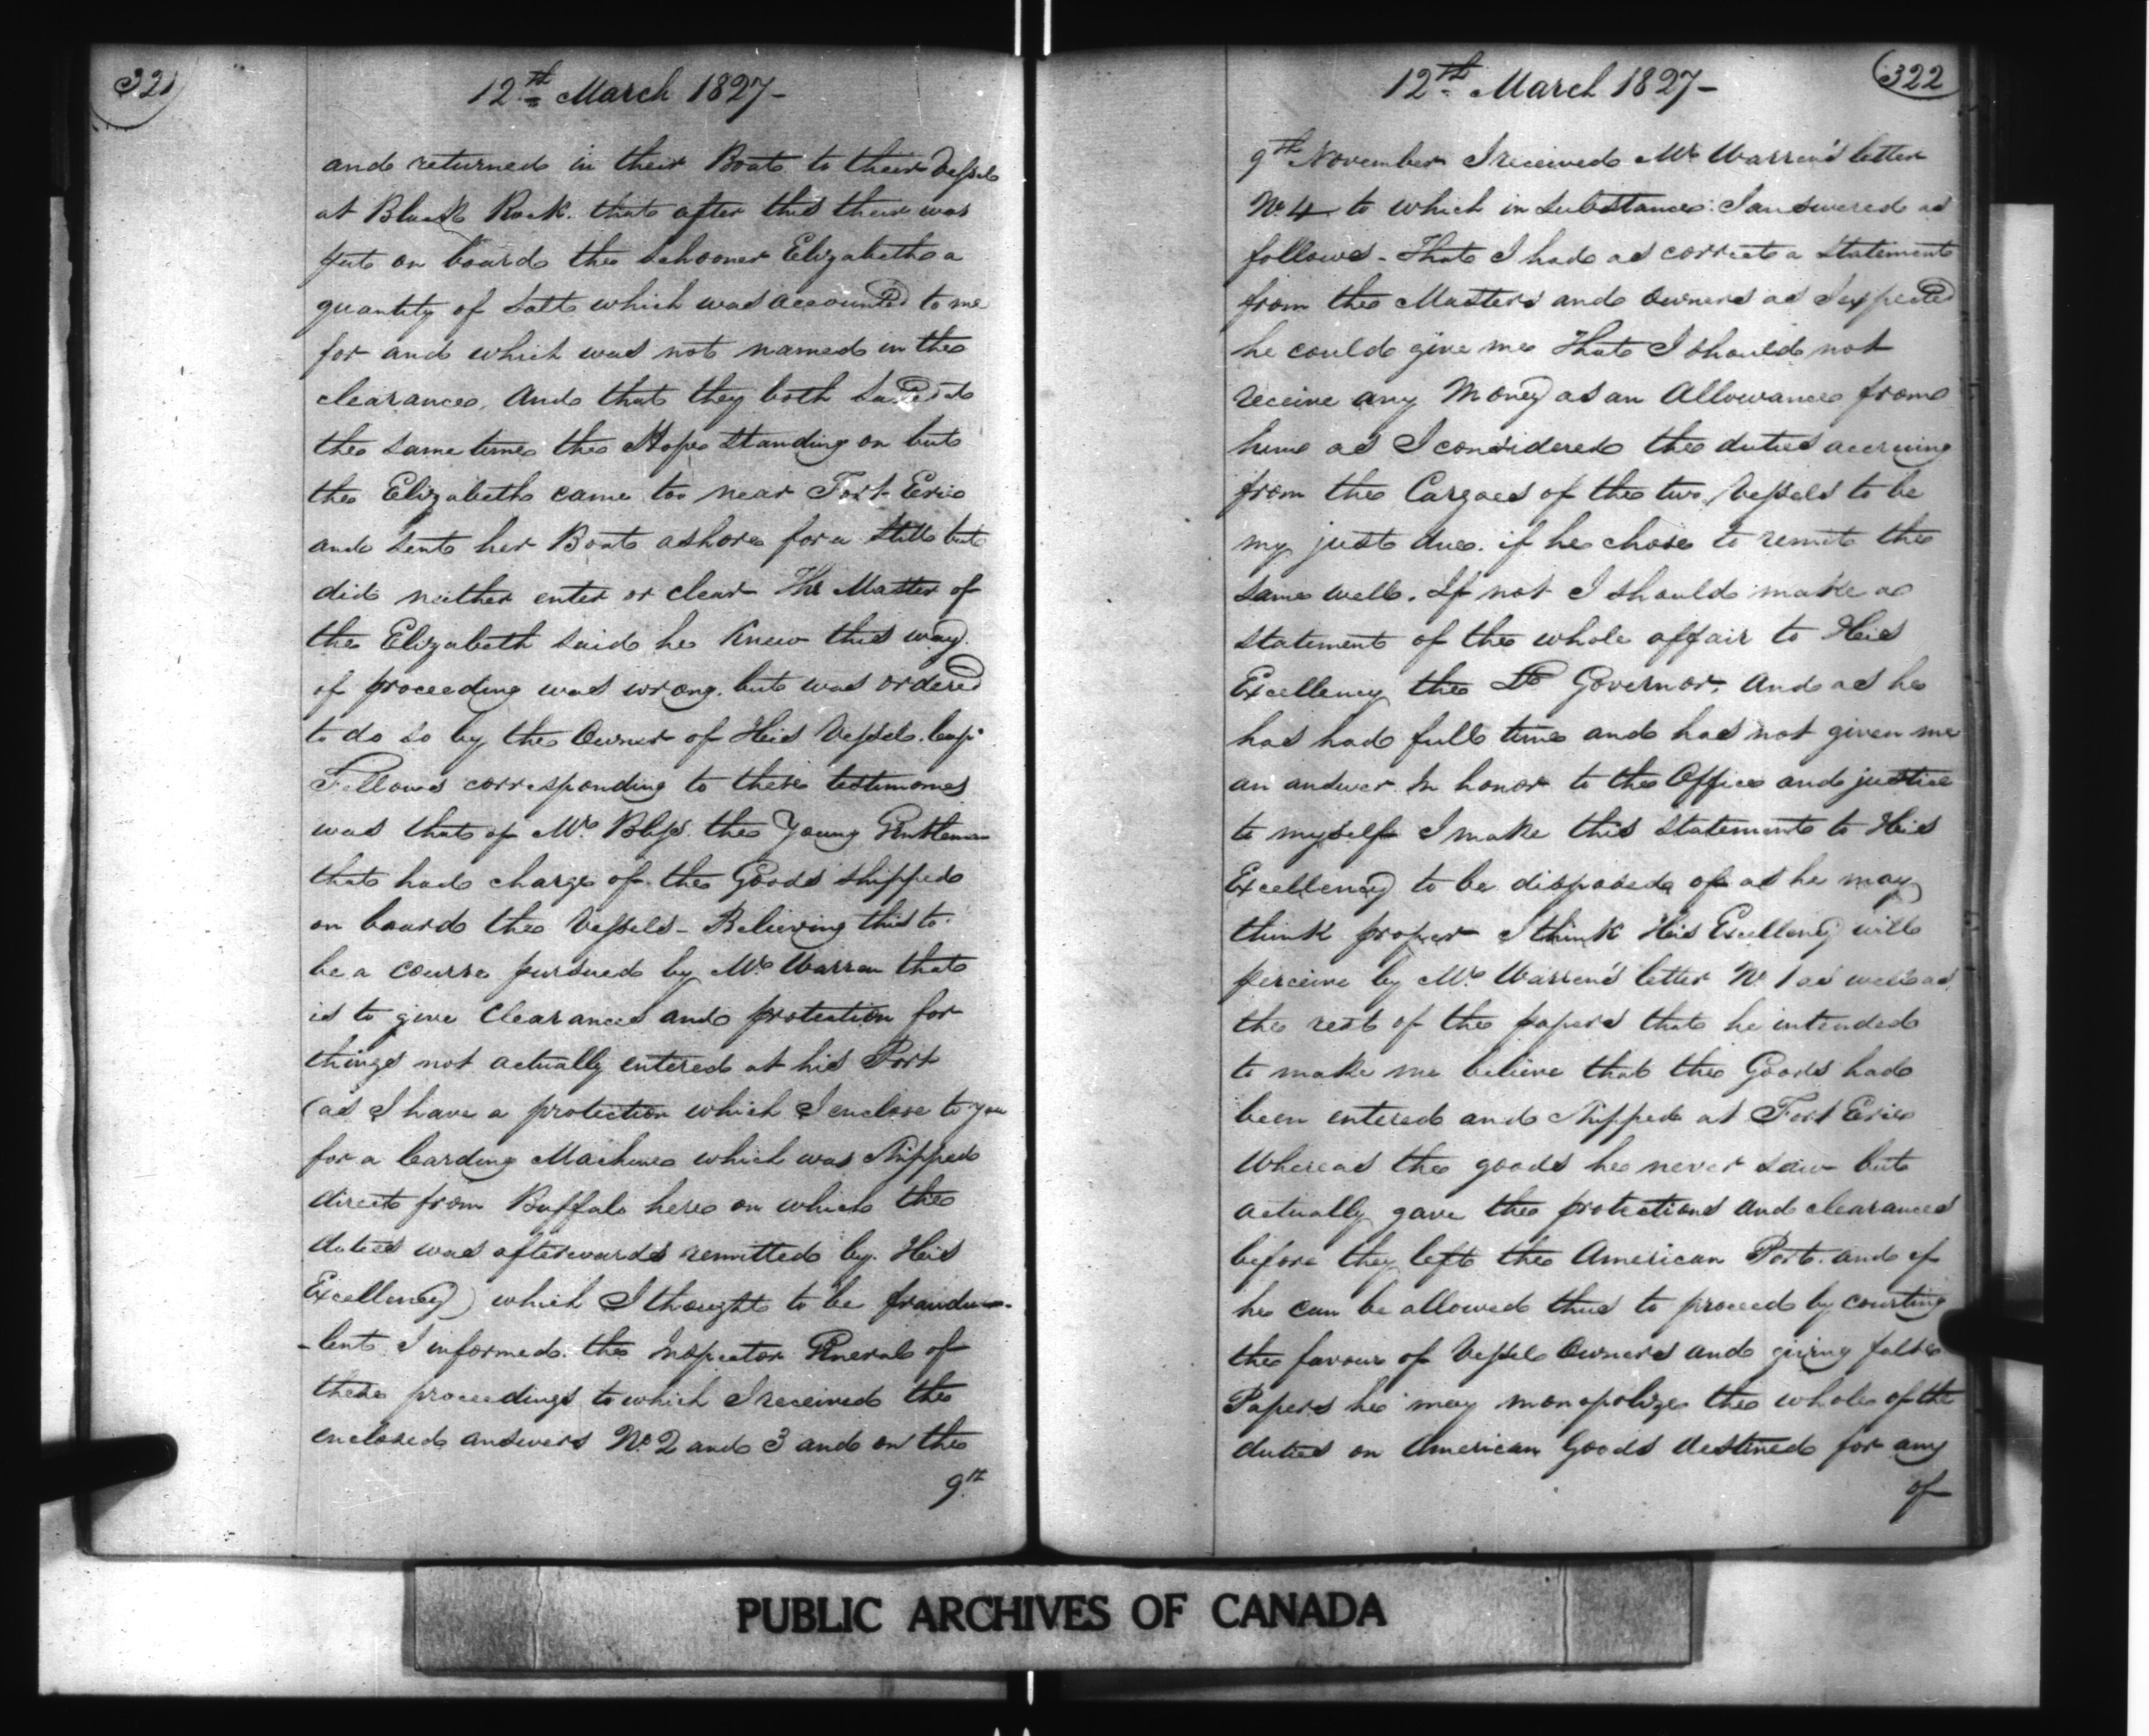 321
12th March 1827-
and returned in their Boat to their Vessel
at Black Rock. that after this there was
put on board the Schooner Elizabeth a
quantity of Salt which was accounted to me
for and which was not named in the
clearance. And that they both Sailed at
the same time the Hope standing on but
the Elizabeth came too near Fort Erie
and sent her Boat ashore for a Still but
did neither enter or clear The Master of
the Elizabeth said he knew this way
of proceeding was wrong. but was ordered
to do so by the Owner of His Vessel. Capt
Fellows corresponding to these testimonies
was that of Mr. Bliss. the Young Gentleman
that had charge of the Goods shipped
on board the Vessels - Believing this to
be a course pursued by Mr. Warren that
is to give Clearances and protection for
things not actually entered at his Port
(as I have a protection which I enclose to you
for a Carding Machine which was Shipped
direct from Buffalo here on which the
duties was afterwards remitted by His
Excellency) which I thought to be fraudu-
-lent I informed the Inspector General of
these proceedings to which I received the
enclosed answers No 2 and 3 and on the
9th
322
12th March 1827-
9th November I received Mr Warren's letter
No 4 to which in substance I answered as
follows - That I had as correct a Statement
from the Masters and Owners as I expected
he could give me That I should not
receive any Money as an Allowance from
him as I considered the duties accruing
from the Cargoes of the two Vessels to be
my just due. if he chose to remit the
same well. If not I should make a
statement of the whole affair to His
Excellency the Lt Governor. And as he
has had full time and has not given me
an answer In honor to the Office and justice
to myself I make this Statement to His
Excellency to be disposed of as he may
think proper I think His Excellency will
perceive by Mr. Warren's letter No 1 as well as
the rest of the papers that he intended
to make me believe that the Goods had
been entered and Shipped at Fort Erie
Whereas the goods he never saw but
actually gave the protections and clearances
before they left the American Port. and if
he can be allowed thus to proceed by courting
the favour of Vessel Owners and giving false
Papers he may monopolize the whole of the
duties on American Goods destined for any
of
PUBLIC ARCHIVES OF CANADA